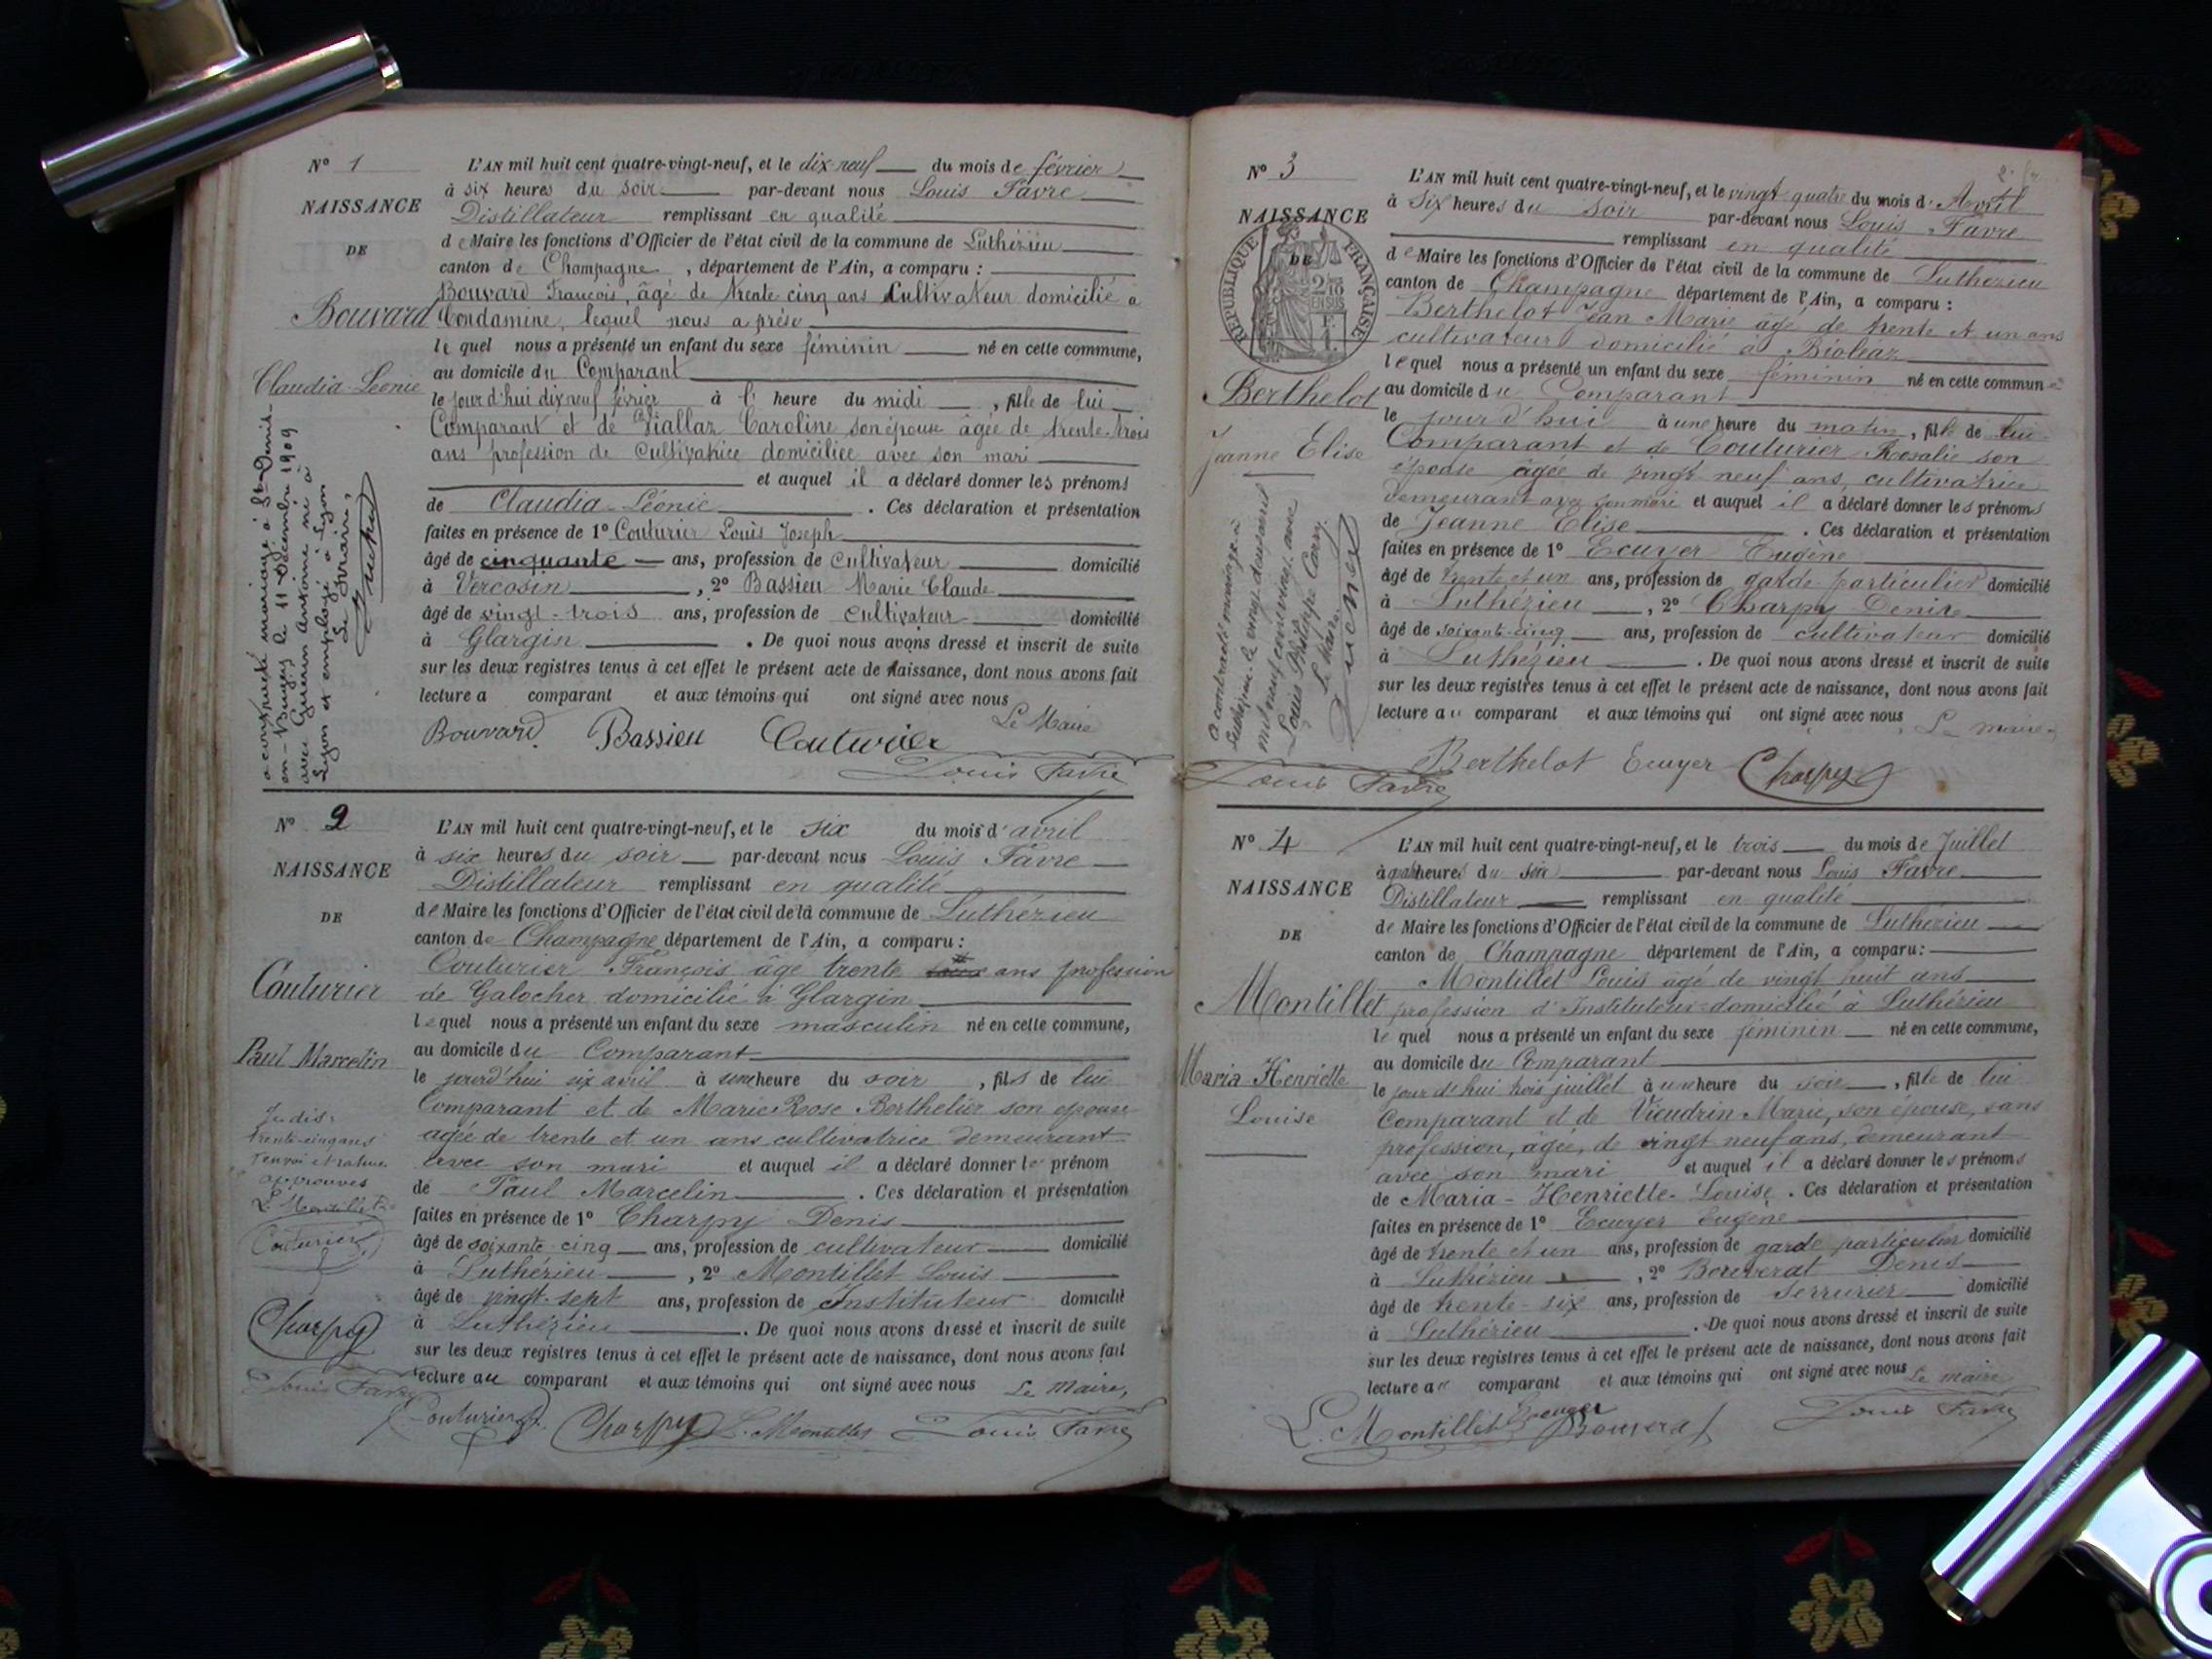 N° 1
NAISSANCE
DE
Bouvard
Claudia-Léonie
a contracté mariage à St-Denis-
en-Bugey le 11 Décembre 1909
avec Guerin Antoine né à
Lyon et employé à Lyon
L'AN mil huit cent quatre-vingt-neuf, et le dix-neuf du mois de février
à six heures du soir par-devant nous Louis Favre
Distillateur remplissant en qualité
de Maire les fonctions d'Officier de l'état civil de la commune de Luthézieu
canton de Champagne, département de l'Ain, a comparu :
Bouvard François, âgé de trente cinq ans Cultivateur domicilié à
Condamine, lequel nous a prése
lequel nous a présenté un enfant du sexe féminin né en cette commune,
au domicile du Comparant
le jour d'hui dix neuf février à l' heure du midi, fille de lui
Comparant et de Viallaz Caroline son épouse âgée de trente-trois
ans profession de Cultivatrice domiciliée avec son mari
et auquel il a déclaré donner les prénoms
de Claudia-Léonie. Ces déclaration et présentation
faites en présence de 1° Couturier Louis Joseph
âgé de cinquante ans, profession de Cultivateur domicilié
à Vercosin, 2° Bassieu Marie Claude
âgé de vingt-trois ans, profession de Cultivateur domicilié
à Glargin. De quoi nous avons dressé et inscrit de suite
sur les deux registres tenus à cet effet le présent acte de naissance, dont nous avons fait
lecture a comparant et aux témoins qui ont signé avec nous
Le Maire
Bouvard Bassieu Couturier
Louis Favre
N° 2
NAISSANCE
DE
Couturier
Paul Marcelin
Je dis:
trente-cinq ans
renvoi et rature
approuvés
L. Montillet
Couturier
Charpy
Louis Favre
L'AN mil huit cent quatre-vingt-neuf, et le six du mois d'avril
à six heures du soir par-devant nous Louis Favre
Distillateur remplissant en qualité
de Maire les fonctions d'Officier de l'état civil de la commune de Luthézieu
canton de Champagne département de l'Ain, a comparu :
Couturier François âgé trente ans profession
de Galocher domicilié à Glargin
lequel nous a présenté un enfant du sexe masculin né en cette commune,
au domicile du Comparant
le jourd'hui six avril à une heure du soir, fils de lui
Comparant et de Marie Rose Berthelier son épouse
agée de trente et un ans cultivatrice demeurant
avec son mari et auquel il a déclaré donner le prénom
de Paul Marcelin. Ces déclaration et présentation
faites en présence de 1° Charpy Denis
âgé de soixante cinq ans, profession de cultivateur domicilié
à Luthézieu, 2° Montillet Louis
âgé de vingt-sept ans, profession de Instituteur domicilié
à Luthézieu. De quoi nous avons dressé et inscrit de suite
sur les deux registres tenus à cet effet le présent acte de naissance, dont nous avons fait
lecture au comparant et aux témoins qui ont signé avec nous Le Maire,
Couturier Charpy L. Montillet Louis Favre
N° 3
NAISSANCE
DE
RÉPUBLIQUE FRANÇAISE
2/10
EN SUS
Berthelot
Jeanne Elise
A contracté mariage à
Luthézieu le vingt-deux avril
mil neuf cent vingt avec
Louis Philippe Carry.
Le Maire
L'AN mil huit cent quatre-vingt-neuf, et le vingt quatre du mois d'Avril
à Six heures du Soir par-devant nous Louis Favre
remplissant en qualité
de Maire les fonctions d'Officier de l'état civil de la commune de Luthezieu
canton de Champagne département de l'Ain, a comparu :
Berthelot Jean Marie âgé de trente et un ans
cultivateur domicilié à Bioléaz
lequel nous a présenté un enfant du sexe féminin né en cette commune
au domicile du Comparant
le jour d'hui à une heure du matin, fille de lui
Comparant et de Couturier Rosalie son
épouse âgée de vingt neuf ans, cultivatrice
demeurant avec son mari et auquel il a déclaré donner les prénoms
de Jeanne Elise. Ces déclaration et présentation
faites en présence de 1° Ecuyer Eugène
âgé de trente et un ans, profession de garde particulier domicilié
à Luthézieu, 2° Charpy Denis
âgé de soixante-cinq ans, profession de cultivateur domicilié
à Luthézieu. De quoi nous avons dressé et inscrit de suite
sur les deux registres tenus à cet effet le présent acte de naissance, dont nous avons fait
lecture au comparant et aux témoins qui ont signé avec nous, Le maire
Berthelot Ecuyer Charpy
Louis Favre
N° 4
NAISSANCE
DE
Montillet
Maria Henriette
Louise
L'AN mil huit cent quatre-vingt-neuf, et le trois du mois de Juillet
à heures du soir par-devant nous Louis Favre
Distillateur remplissant en qualité
de Maire les fonctions d'Officier de l'état civil de la commune de Luthézieu
canton de Champagne département de l'Ain, a comparu:
Montillet Louis âgé de vingt huit ans
profession d'Instituteur domicilié à Luthézieu
lequel nous a présenté un enfant du sexe féminin né en cette commune,
au domicile du Comparant
le jour d'hui trois juillet à une heure du soir, fille de lui
Comparant et de Vieudrin Marie, son épouse, sans
profession, âgée, de vingt neuf ans, demeurant
avec son mari et auquel il a déclaré donner les prénoms
de Maria-Henriette-Louise. Ces déclaration et présentation
faites en présence de 1° Ecuyer Eugène
âgé de trente et un ans, profession de garde particulier domicilié
à Luthézieu, 2° Denis
âgé de trente-six ans, profession de Serrurier domicilié
à Luthézieu. De quoi nous avons dressé et inscrit de suite
sur les deux registres tenus à cet effet le présent acte de naissance, dont nous avons fait
lecture a comparant et aux témoins qui ont signé avec nous Le maire
L. Montillet Ecuyer Louis Favre